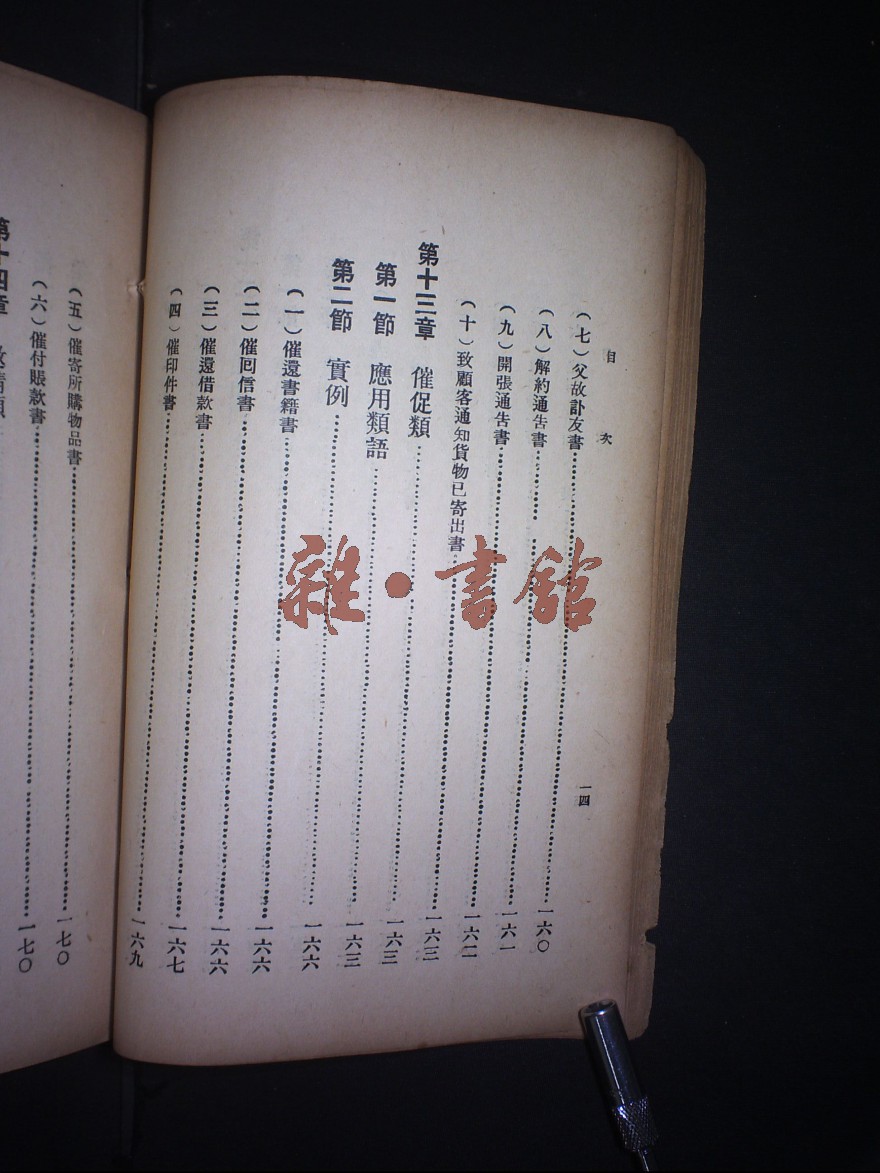 目次 一四
(七)父故訃友書……一六〇
(八)解約通告書……一六一
(九)開張通告書……一六二
(十)致顧客通知貨物已寄出書……一六三
第十三章 催促類……一六三
第一節 應用類語……一六三
第二節 實例……一六六
(一)催還書籍書……一六六
(二)催囘信書……一六六
(三)催還借款書……一六七
(四)催印件書……一六九
(五)催寄所購物品書……一七〇
(六)催付賬款書……一七〇
第十四章
雜·書館